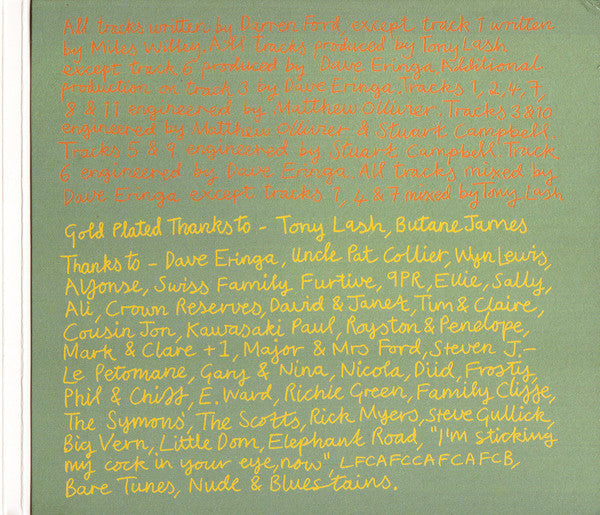 All tracks written by Darren Ford, except track 7 written
by Miles Willey. All tracks produced by Tony Lash
except track 6 produced by Dave Eringa. Additional
production on track 3 by Dave Eringa. Tracks 1, 2, 4, 7,
8 & 11 engineered by Matthew Ollivier. Tracks 3 & 10
engineered by Matthew Ollivier & Stuart Campbell.
Tracks 5 & 9 engineered by Stuart Campbell. Track
6 engineered by Dave Eringa. All tracks mixed by
Dave Eringa except tracks 1, 4 & 7 mixed by Tony Lash
Gold Plated Thanks to - Tony Lash, Butane James
Thanks to - Dave Eringa, Uncle Pat Collier, Wyn Lewis,
Alfonse, Swiss Family Furtive, 9PR, Ellie, Sally,
Ali, Crown Reserves, David & Janet, Tim & Claire,
Cousin Jon, Kawasaki Paul, Royston & Penelope,
Mark & Clare +1, Major & Mrs Ford, Steven J.-
Le Petomane, Gary & Nina, Nicola, Düd, Frosty,
Phil & Chiff, E. Ward, Richie Green, Family Cliffe,
The Symons', The Scotts, Rick Myers, Steve Gullick,
Big Vern, Little Dom, Elephant Road, "I'm sticking
my cock in your eye, now", LFCAFCCAFCAFCB,
Bare Tunes, Nude & Blues tains.